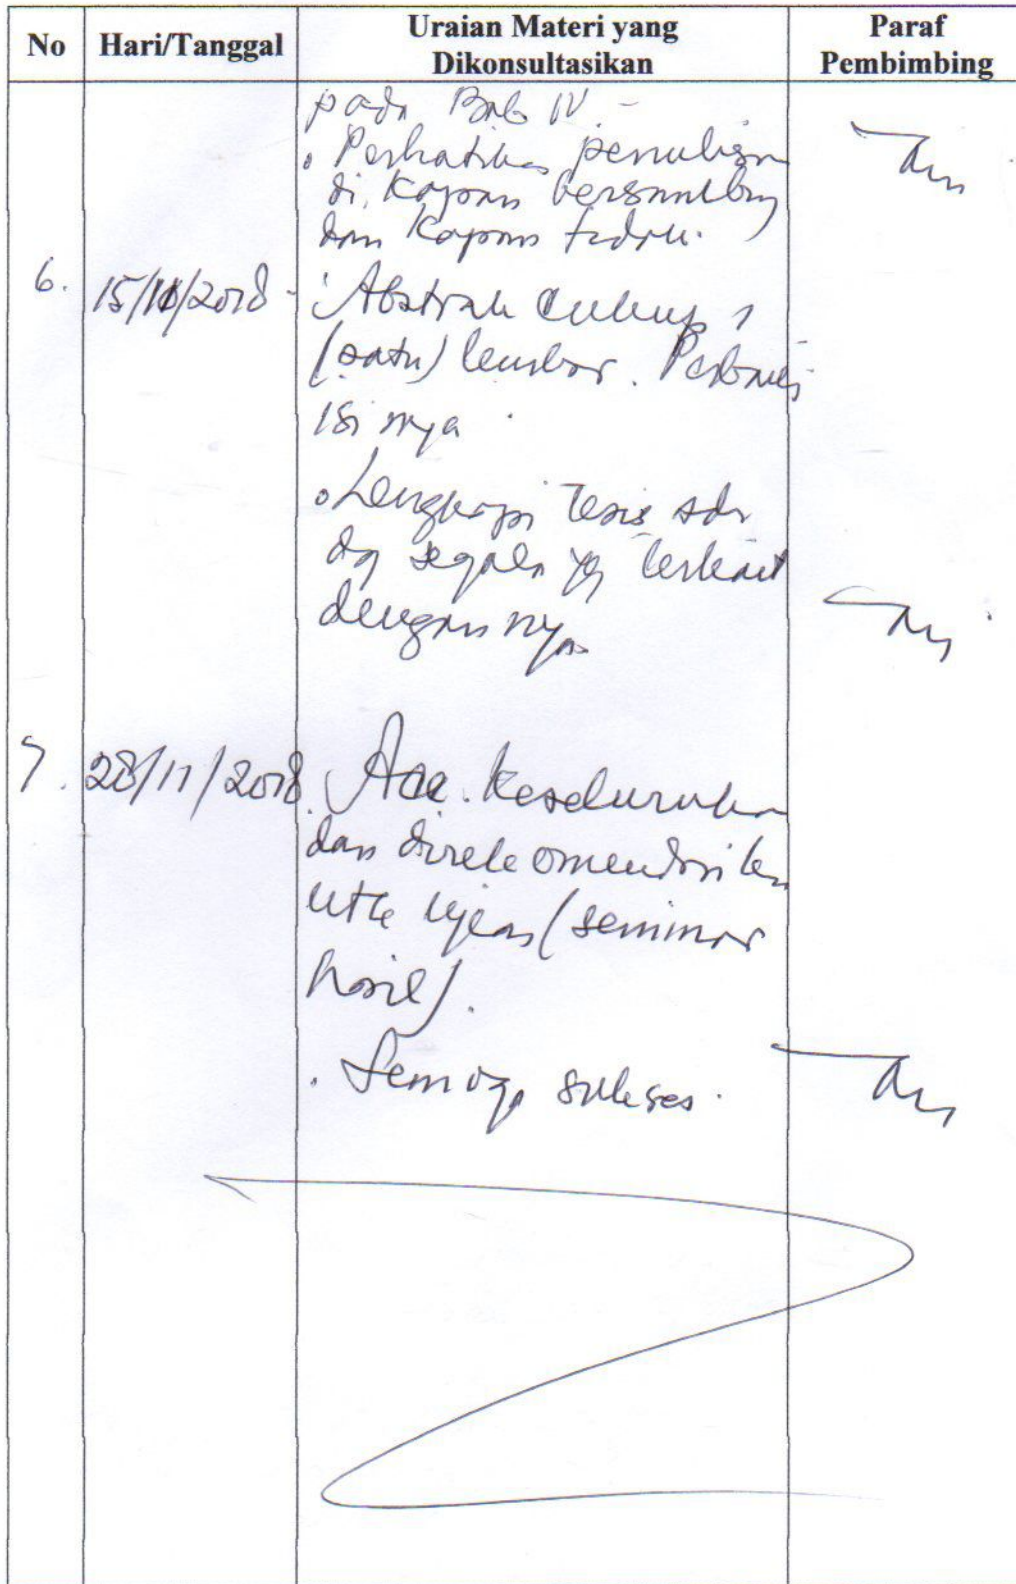 No Hari/Tanggal Uraian Materi yang Dikonsultasikan Paraf Pembimbing
pada Bab IV -
. Perhatikan penulisan
di, kapan bersambung
dan kapan tidak.
6. 15/11/2018 - . Abstrak cukup 1
(satu) lembar. Perbaiki
isi nya.
. Lengkapi Tesis sdr
dg segala yg terkait
dengan nya.
7. 28/11/2018 . Acc. keseluruhan
dan direkomendasikan
utk ujian (seminar
hasil).
. Semoga sukses.